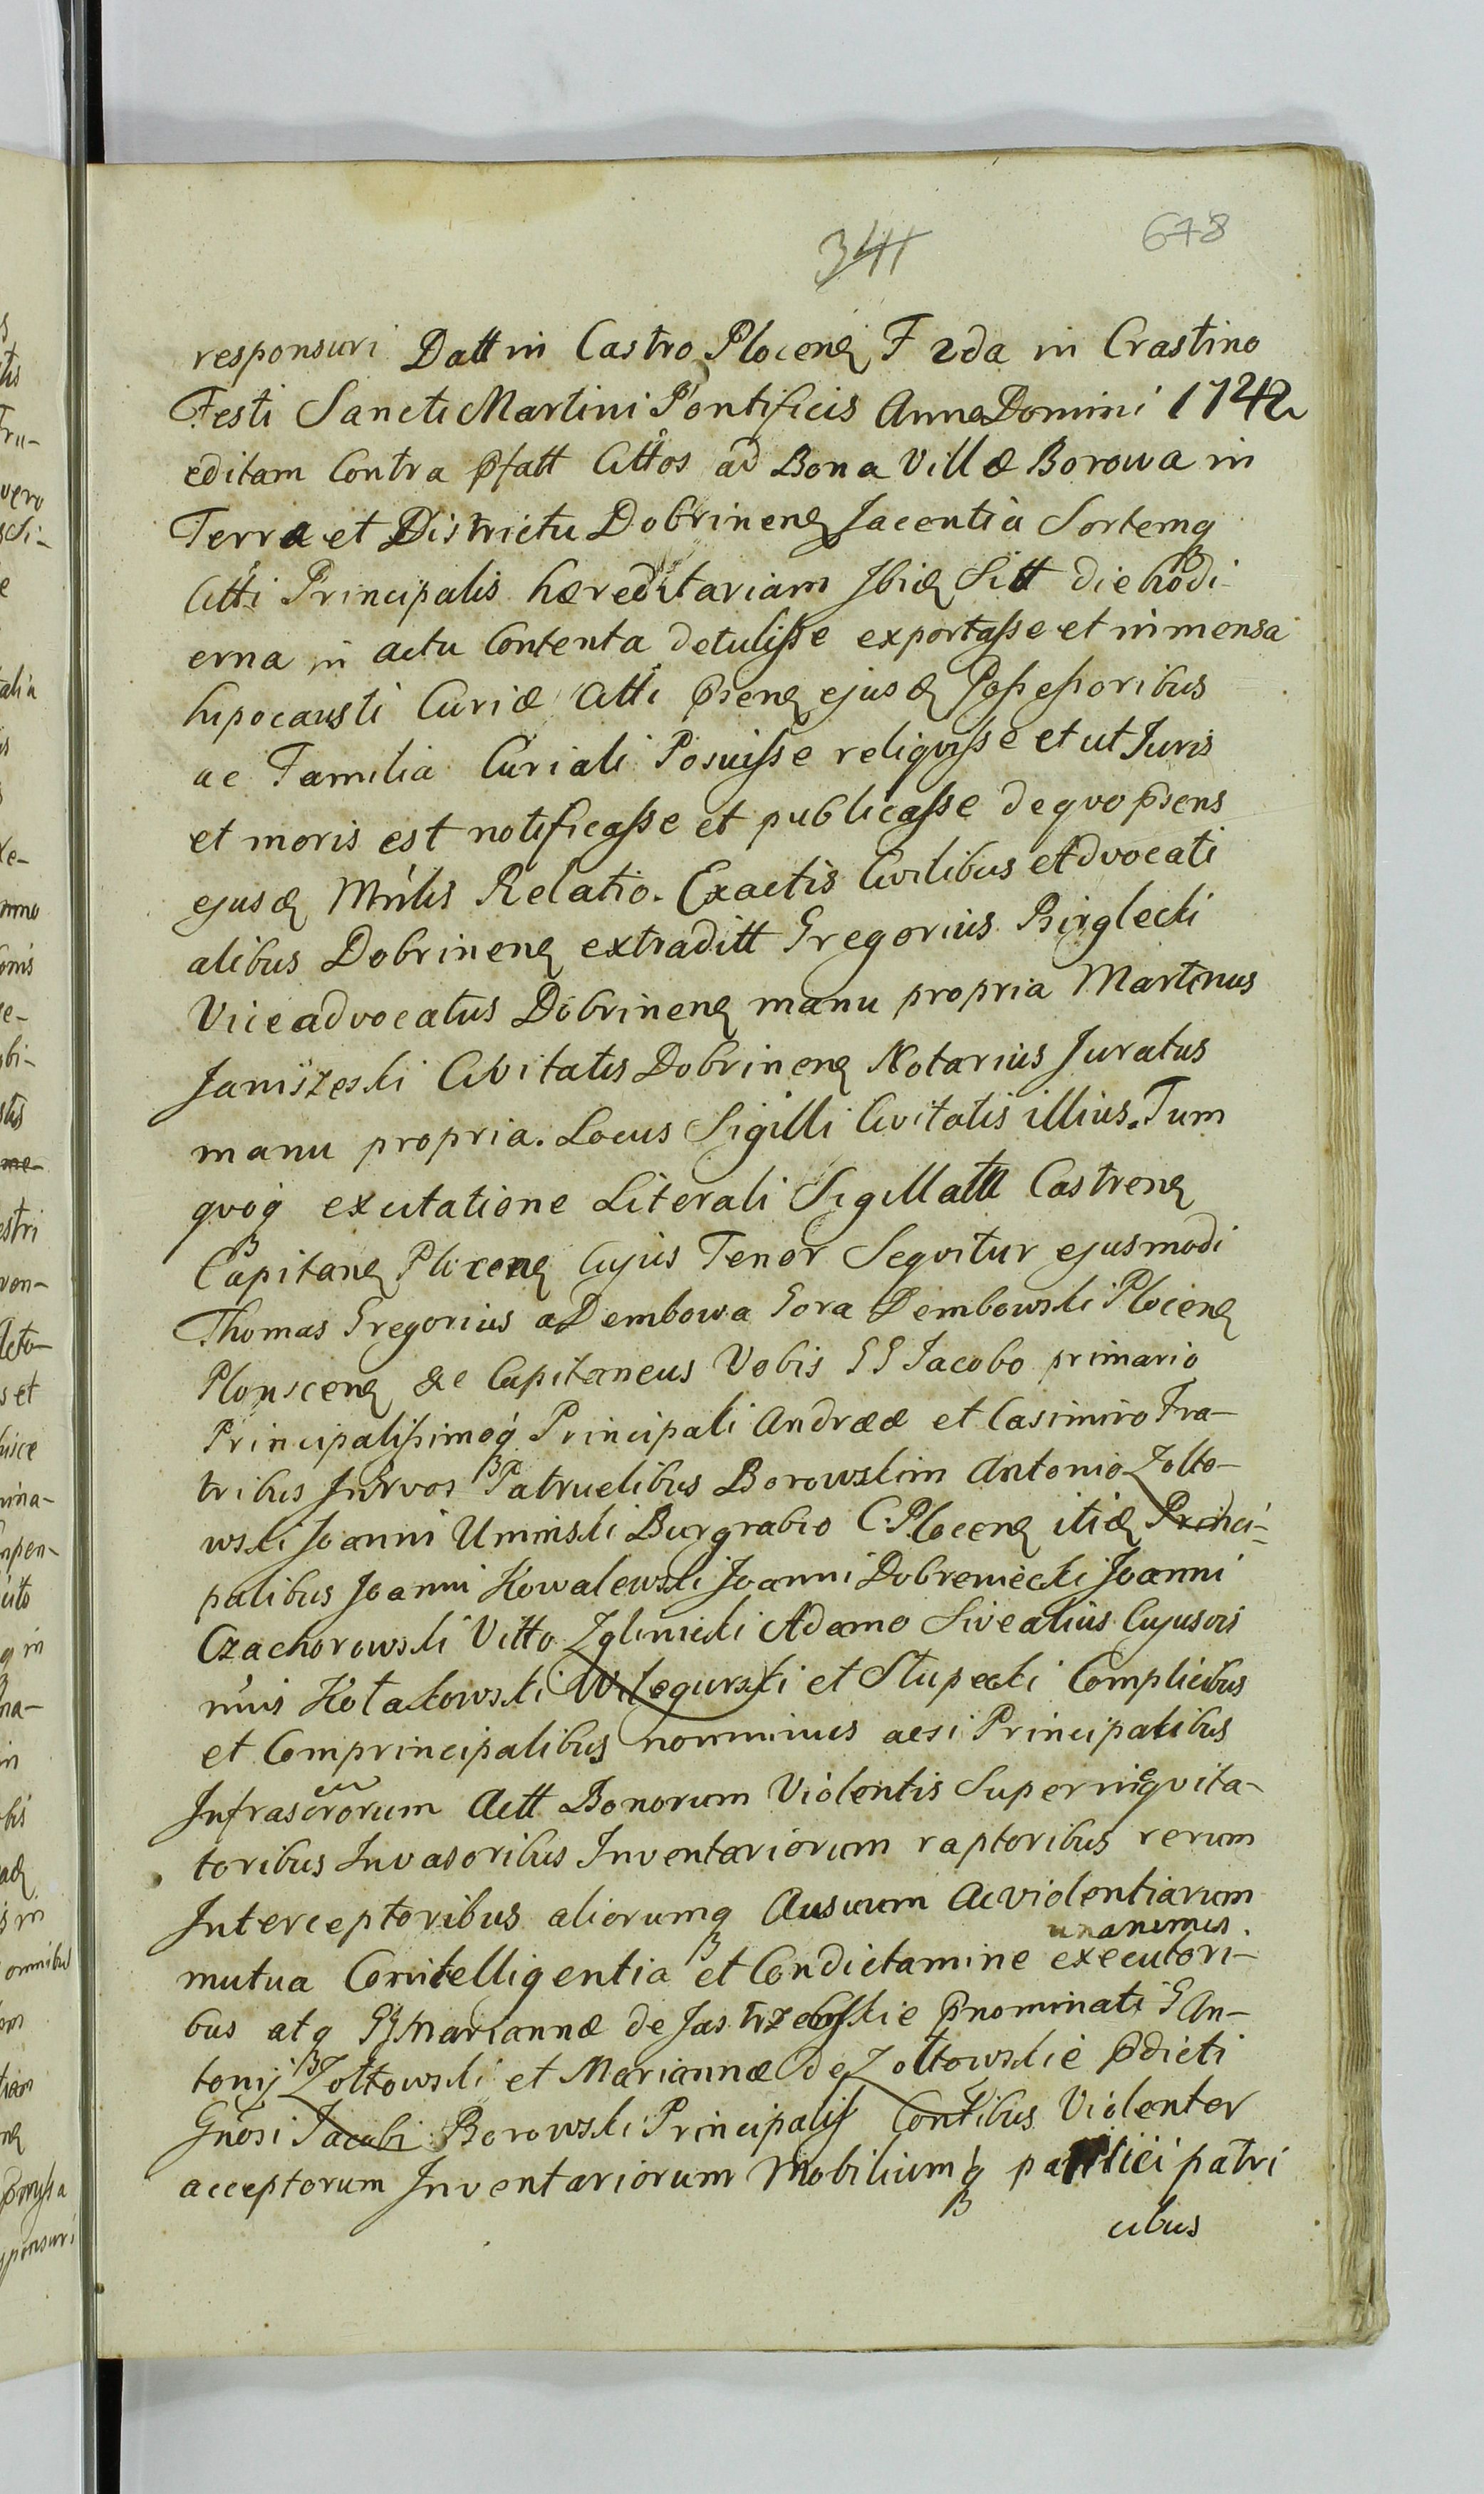 341 678
responsuri Datt in Castro Plocenꝫ F 2da in Crastino
Festi Sancti Martini Pontificis Anno Domini 1742
editam Contra pſatt Cittos ad Bona Villæ Borowa in
Terra et Districtu Dobrinenꝫ Jacentia Sortemq
Citti Principalis hæreditariam Ibidꝫ Sitt die hodi-
erna in actu Contenta detulisse exportasse et in mensa
hipocausti Curiæ Citti psenꝫ ejusdꝫ Possessoribus
ac Familia Curiali Posuisse reliqvisse et ut Juris
et moris est notificasse et publicasse de qvo psens
ejusdꝫ Mnlis Relatio. Exactis Civilibus Advocati
alibus Dobrinenꝫ extraditt Gregorius Birglecki
Viceadvocatus Dobrinenꝫ manu propria Martinus
Janiszeski Civitatis Dobrinenꝫ Notarius Juratus
manu propria. Locus Sigilli Civitatis illius. Tum
qvoq ex citatione Literali Sigillatt Castrenꝫ
Capitanꝫ Plocenꝫ Cujus Tenor Seqvitur ejusmodi
Thomas Gregorius a Dembowa Gora Dembowski Plocenꝫ
Plonscenꝫ &c Capitaneus Vobis GG Jacobo primario
Principalissimoq Principali Andrææ et Casimiro Fra-
tribus Inter vos Patruelibus Borowskim Antonio Zolto-
wski Joanni Uminski Burgrabio C. Plocenꝫ itidꝫ Princi-
palibus Joanni Kowalewski Joanni Dobreniecki Joanni
Czachorowski Vitto Zglinicki Adamo Sive alius Cujusvis
nnis Kotakowski Wilegurski et Stupecki Complicibus
et Comprincipalibus nominius ac si Principalibus
Infrascrorum Actt Bonorum Violentis Superineqvita-
toribus Invasoribus Inventariorum raptoribus rerum
Interceptoribus aliorumq Ausuum Ac violentiarum
unanimis.
mutua Conitelligentia et Condictamine executori-
bus atq GG Mariannæ de Jastrzebskie pnominati G An-
tonij Zoltowski et Mariannæ de Zoltowskie pdicti
Gnosi Jacobi Borowski Principalis Contibus Violenter
acceptorum Inventariorum Mobiliumq particii patri
cibus